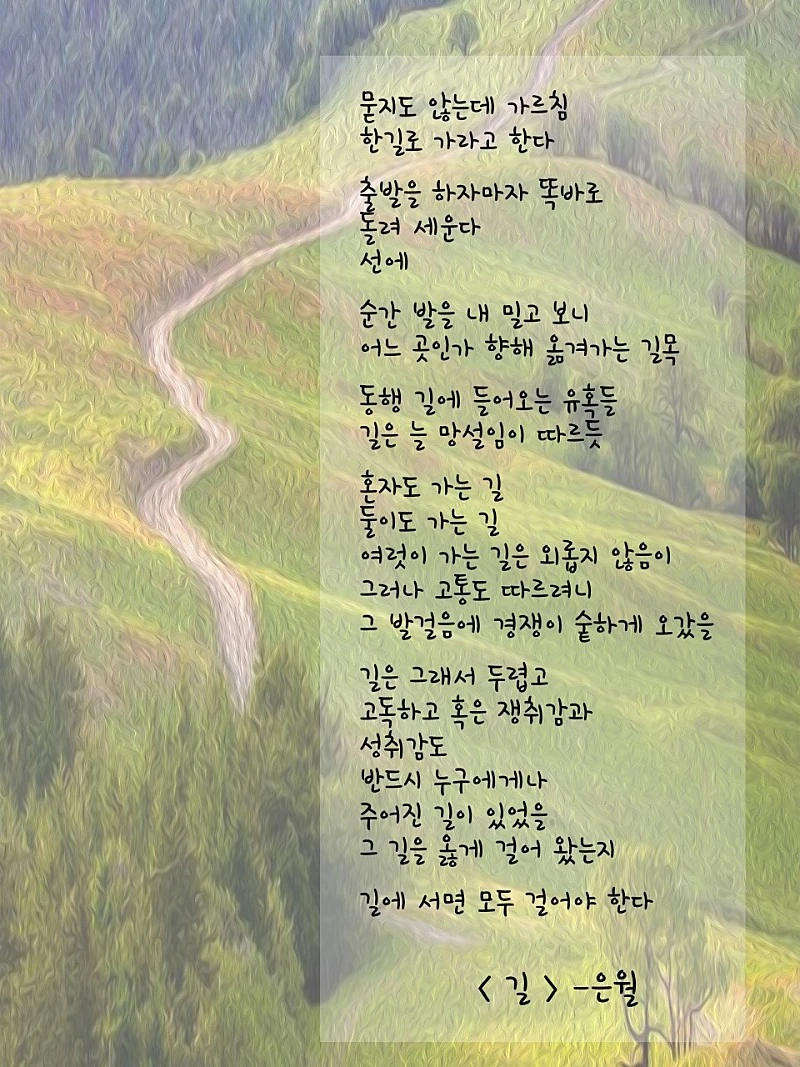 묻지도 않는데 가르침
한길로 가라고 한다
출발을 하자마자 똑바로
돌려 세운다
선에
순간 발을 내 밀고 보니
어느 곳인가 향해 옮겨가는 길목
동행 길에 들어오는 유혹들
길은 늘 망설임이 따르듯
혼자도 가는 길
둘이도 가는 길
여럿이 가는 길은 외롭지 않음이
그러나 고통도 따르려니
그 발걸음에 경쟁이 숱하게 오갔을
길은 그래서 두렵고
고독하고 혹은 쟁취감과
성취감도
반드시 누구에게나
주어진 길이 있었을
그 길을 옳게 걸어 왔는지
길에 서면 모두 걸어야 한다
< 길 > -은월